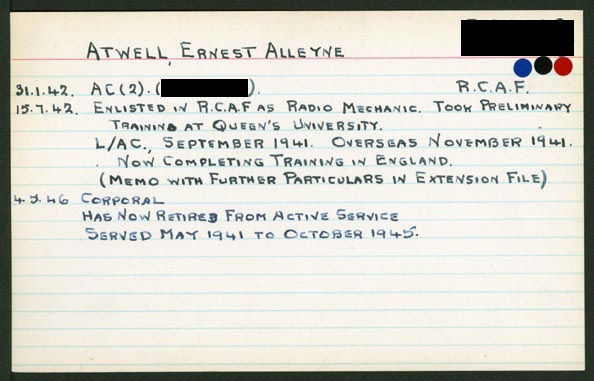 ATWELL, ERNEST ALLEYNE
31.1.42. AC(2). ( ). R.C.A.F.
15.7.42. ENLISTED IN R.C.A.F AS RADIO MECHANIC. TOOK PRELIMINARY
TRAINING AT QUEEN'S UNIVERSITY.
L/AC., SEPTEMBER 1941. OVERSEAS NOVEMBER 1941.
NOW COMPLETING TRAINING IN ENGLAND.
(MEMO WITH FURTHER PARTICULARS IN EXTENSION FILE)
4.3.46 CORPORAL
HAS NOW RETIRED FROM ACTIVE SERVICE
SERVED MAY 1941 TO OCTOBER 1945.